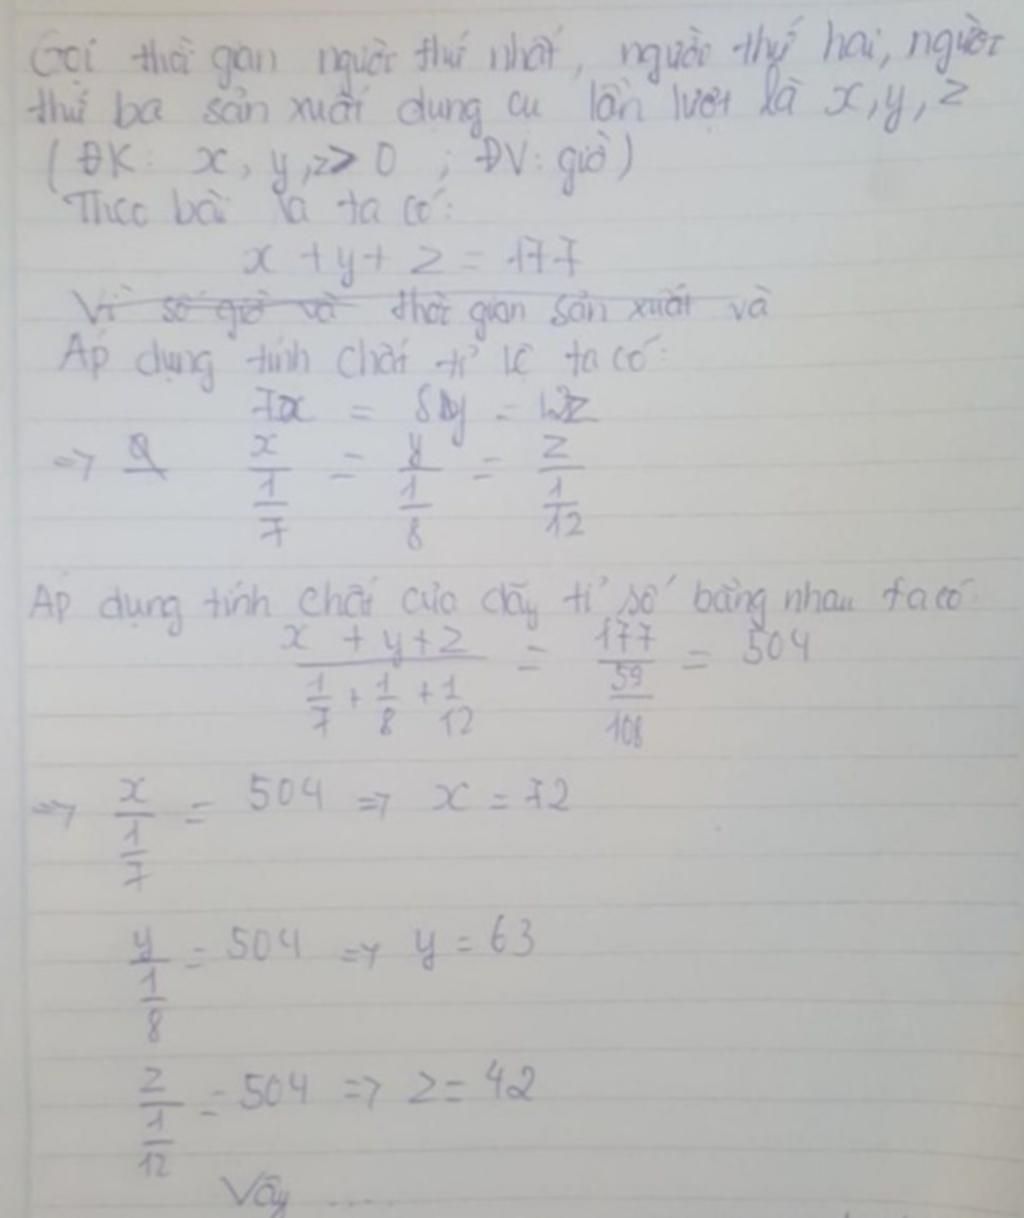 Gọi thời gian người thứ nhất, người thứ hai, người
thứ ba sản xuất dụng cụ lần lượt là x, y, z
(ĐK: x, y, z > 0 ; ĐV: giờ)
Theo bài ra ta có:
x + y + z = 177
Vì số giờ và thời gian sản xuất và
Áp dụng tính chất tỉ lệ ta có:
7x = 8y = 12z
=> x/(1/7) = y/(1/8) = z/(1/12)
Áp dụng tính chất của dãy tỉ số bằng nhau ta có
(x + y + z)/(1/7 + 1/8 + 1/12) = 177/(59/168) = 504
=> x/(1/7) = 504 => x = 72
y/(1/8) = 504 => y = 63
z/(1/12) = 504 => z = 42
Vậy ....